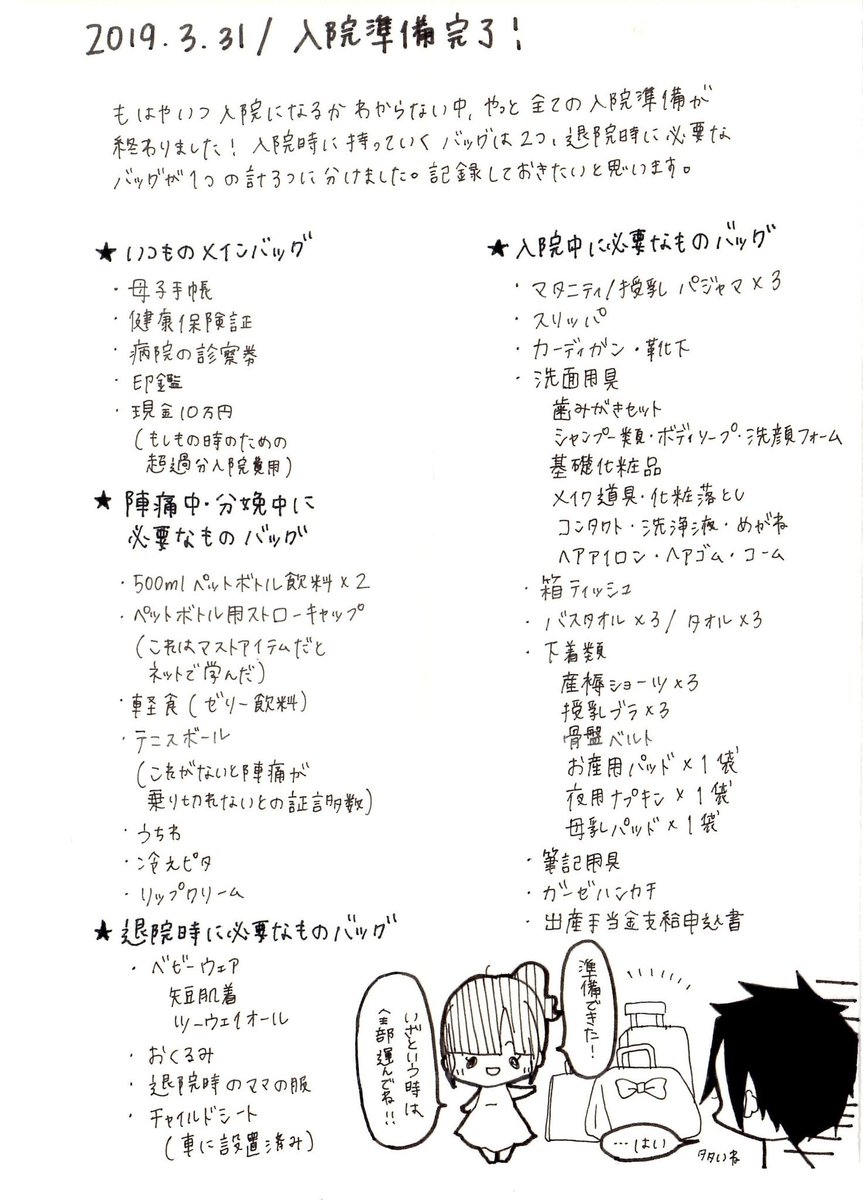 2019.3.31/ 入院準備完了！
もはやいつ入院になるかわからない中、やっと全ての入院準備が
終わりました！入院時に持っていくバッグは2つ、退院時に必要な
バッグが1つの計3つに分けました。記録しておきたいと思います。
★ いつものメインバッグ
・母子手帳
・健康保険証
・病院の診察券
・印鑑
・現金10万円
(もしもの時のための
超過分入院費用)
★ 陣痛中・分娩中に
必要なものバッグ
・500mlペットボトル飲料×2
・ペットボトル用ストローキャップ
(これはマストアイテムだと
ネットで学んだ)
・軽食(ゼリー飲料)
・テニスボール
(これがないと陣痛が
乗り切れないとの証言多数)
・うちわ
・冷えピタ
・リップクリーム
★ 退院時に必要なものバッグ
・ベビーウェア
短肌着
ツーウェイオール
・おくるみ
・退院時のママの服
・チャイルドシート
(車に設置済み)
★ 入院中に必要なものバッグ
・マタニティ/授乳パジャマ×3
・スリッパ
・カーディガン・靴下
・洗面用具
歯みがきセット
シャンプー類・ボディソープ・洗顔フォーム
基礎化粧品
メイク道具・化粧落とし
コンタクト・洗浄液・めがね
ヘアアイロン・ヘアゴム・コーム
・箱ティッシュ
・バスタオル×3/ タオル×3
・下着類
産褥ショーツ×3
授乳ブラ×3
骨盤ベルト
お産用パッド×1袋
夜用ナプキン×1袋
母乳パッド×1袋
・筆記用具
・ガーゼハンカチ
・出産手当金支給申込書
準備できた！
いざという時は
全部運んでね!!
…はい
タタいね